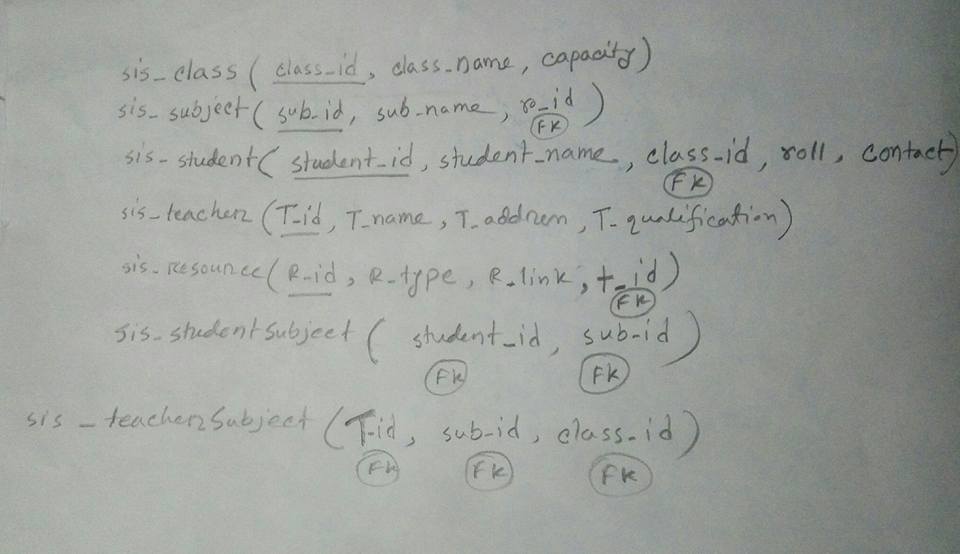 sis_class ( class_id, class_name, capacity)
sis_subject ( sub_id, sub_name, r_id )
FK
sis-student( student_id, student_name, class_id, roll, contact)
FK
sis_teacher (T_id, T_name, T_address, T-qualification)
sis_Resource( R_id, R_type, R_link, t_id)
FK
sis_studentSubject ( student_id, sub_id )
FK FK
sis _ teacherSubject (T-id, sub-id, class-id)
FK FK FK